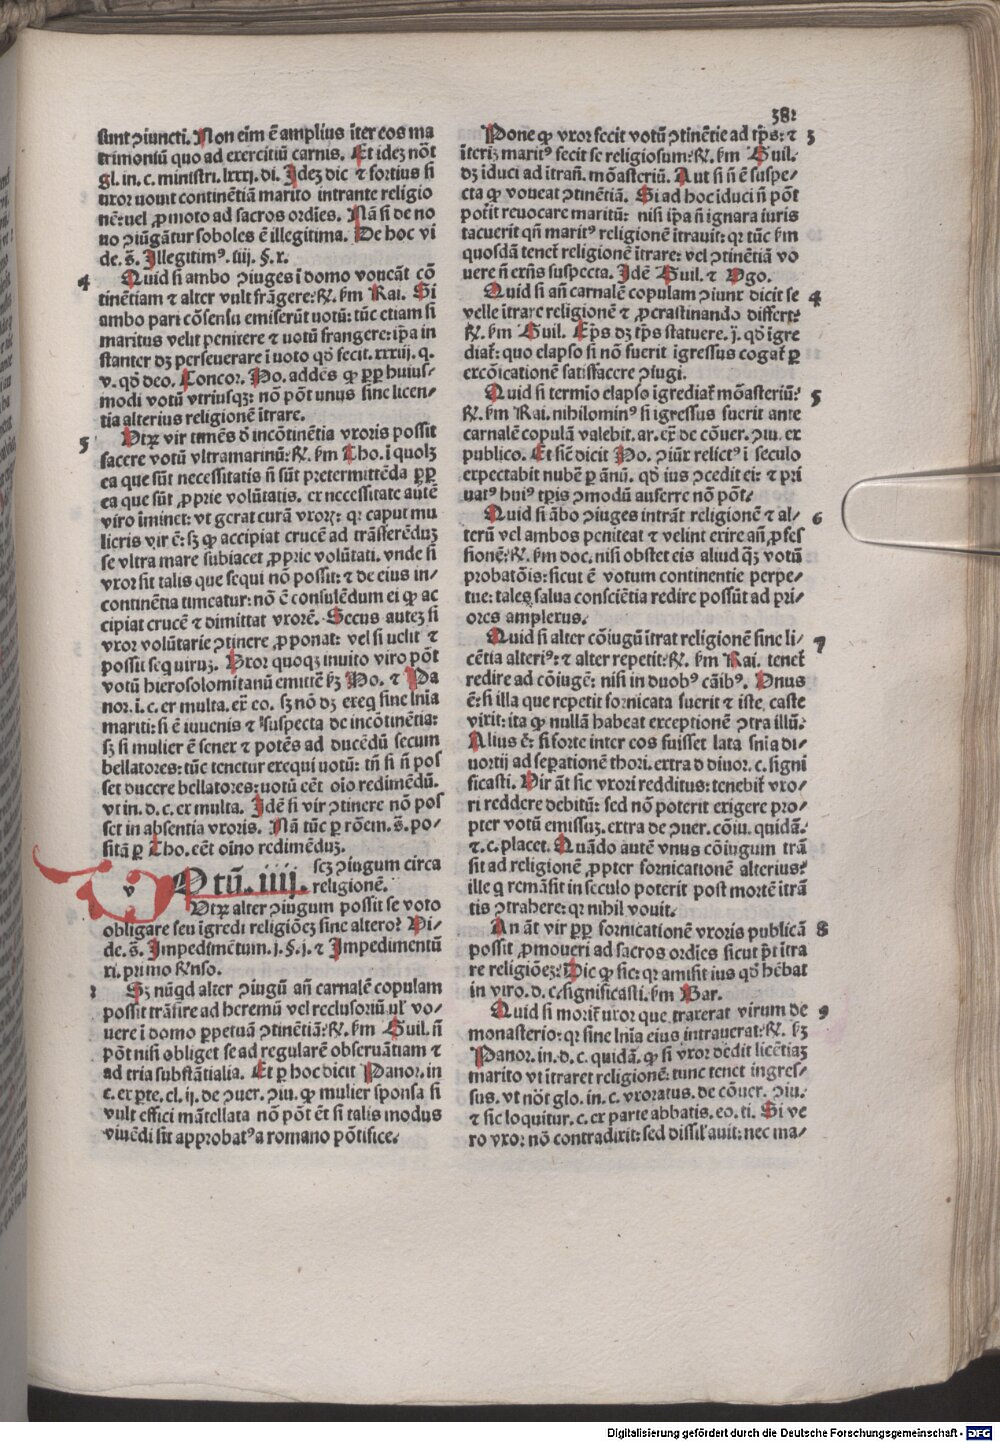 382
sunt ↄiuncti. Non eim̄ ē amplius īter eos ma
trimoniū quo ad exercitiū carnis. Et idez nōt
gl. in. c. ministri. lxxxj. di. Idez dic ⁊ fortius si
uxor uouit continētiā marito intrante religio
nē: uel ꝓmoto ad sacros ordīes. Nā si de no
uo ↄiūgātur soboles ē illegitima. De hoc vi
de. s̄. Illegitimꝰ. iiij. §. x.
4 Quid si ambo ↄiuges ī domo voueāt cō
tinētiam ⁊ alter vult frāgere: R̄. ẜm Rai. Si
ambo pari cōsensu emiserūt uotū: tūc etiam si
maritus velit penitere ⁊ uotū frangere: ip̄a in
stanter dꝫ perseuerare ī uoto qd̄ fecit. xxxiij. q.
v. qd̄ deo. Concor. Ho. addēs ꝙ ꝓp̄ huius⸗
modi votū vtriusqꝫ: nō pōt unus sine licen⸗
tia alterius religionē ītrare.
5 Utrꝫ vir timēs ð incōtinētia vxoris possit
facere votū vltramarinū: R̄. ẜm Tho. ī quolꝫ
ea que sūt necessitatis n̄ sūt pretermittēda ꝓp̄
ea que sūt ꝓprie volūtatis. ex necessitate autē
viro īminet: vt gerat curā vxorꝭ: qꝛ caput mu
lieris vir ē: sꝫ ꝙ accipiat crucē ad trāsferēduꝫ
se vltra mare subiacet ꝓprie volūtati. vnde si
vxor sit talis que sequi nō possit: ⁊ de eius in⸗
continētia timeatur: nō ē consulēdum ei ꝙ ac
cipiat crucē ⁊ dimittat vxorē. Secus autez si
vxor volūtarie ↄtinere ꝓponat: vel si uelit ⁊
possit seq̄ viruꝫ. Uxor quoqꝫ inuito viro pōt
votū hierosolomitanū emittē ẜꝫ Ho. ⁊ Pa
nor. ī. c. ex multa. ex̄. eo. sꝫ nō dꝫ exeq̄ sine lnīa
mariti: si ē iuuenis ⁊ suspecta de incōtinētia:
sꝫ si mulier ē senex ⁊ potēs ad ducēdū secum
bellatores: tūc tenetur exequi uotū: tn̄ si n̄ pos
set ducere bellatores: uotū eēt oīo redimēdū.
vt in. d. c. ex multa. Idē si vir ↄtinere nō pos
set in absentia vxoris. Nā tūc ꝑ rōem. s̄. po⸗
sitā ꝑ Tho. eēt oīno redimēduꝫ.
v Otū. iiij. scꝫ ↄiugum circa
religionē.
Utrꝫ alter ↄiugum possit se voto
obligare seu īgredi religiōez sine altero? Vi⸗
de. s̄. Impedimētum. j. §. j. ⁊ Impedimentū
xi. primo R̄nso.
2 Sꝫ nūqd alter ↄiugū an̄ carnalē copulam
possit trāsire ad heremū vel reclusoriū ul̓ vo⸗
uere ī domo ꝑpetuā ↄtinētiā: R̄. ẜm Guil. n̄
pōt nisi obliget se ad regularē obseruātiam ⁊
ad tria substātialia. Et ꝑ hoc dicit Panor. in
c. ex parte. el. ij. de ↄuer. ↄiu. ꝙ mulier sponsa si
vult effici mātellata nō pōt ēt si talis modus
viuēdi sit approbatꝰ a romano pōtifice.
3 Pone ꝙ vxor fecit votū ↄtinētie ad tp̄s: ⁊
īteriꝫ maritꝰ fecit se religiosum: R̄. ẜm Guil.
dꝫ īduci ad ītrān. mōasteriū. Aut si n̄ ē suspe⸗
cta ꝙ voueat ↄtinētiā. Si ad hoc īduci n̄ pōt
poterit reuocare maritū: nisi ip̄a n̄ ignara iuris
tacuerit qn̄ maritꝰ religionē ītrauit: qꝛ tūc ẜm
quosdā tenet̄ religionē ītrare: vel ↄtinētiā vo
uere n̄ exn̄s suspecta. Idē Guil. ⁊ Ugo.
4 Quid si an̄ carnalē copulam ↄiunx dicit se
velle ītrare religionē ⁊ ꝓcrastinando differt:
R̄. ẜm Guil. Ep̄s dꝫ tp̄s statuere. j. qd̄ īgre
diat̄: quo elapso si nō fuerit igressus cogat̄ ꝑ
excōicationē satisfacere ↄiugi.
5 Quid si termio elapso īgrediat̄ mōasteriū?
R̄. ẜm Rai. nihilominꝰ si īgressus fuerit ante
carnalē copulā valebit. ar. ex̄. de cōuer. ↄiu. ex
publico. Et sīē dicit Ho. ↄiūx relictꝰ ī seculo
expectabit nubē ꝑ annū. qd̄ ius ↄcedit ei: ⁊ pri
uatꝰ huiꝰ tꝑis ↄmodū auferre nō pōt.
6 Quid si ābo ↄiuges intrāt religionē ⁊ al⸗
terū vel ambos peniteat ⁊ velint exire an̄ ꝓfes
sionē: R̄. ẜm doc. nisi obstet eis aliud qꝫ votū
probatōis: sicut ē votum continentie perpe⸗
tue: tales salua consciētia redire possūt ad pri⸗
ores amplexus.
7 Quid si alter cōiugū ītrat religionē sine li⸗
cētia alteriꝰ: ⁊ alter repetit: R̄. ẜm Rai. tenet̄
redire ad cōiugē: nisi in duobꝰ cāibꝰ. Unus
ē: si illa que repetit fornicata fuerit ⁊ iste caste
vixit: ita ꝙ nullā habeat exceptionē ↄtra illū.
Alius ē: si forte inter eos fuisset lata snīa di⸗
uortij ad seꝑationē thori. extra ð diuor. c. signi
ficasti. Vir āt sic vxori redditus: tenebit̄ vxo⸗
ri reddere debitū: sed nō poterit exigere pro⸗
pter votū emissuꝫ. extra de ↄuer. cōiu. quidā.
⁊. c. placet. Quādo autē vnus cōiugum trā
sit ad religionē ꝓpter fornicationē alterius?
ille q̄ remāsit in seculo poterit post mortē ītrā
tis ↄtrahere: qꝛ nihil vouit.
8 An āt vir ꝓp̄ fornicationē vxoris publicā
possit ꝓmoueri ad sacros ordies sicut pōt ītra
re religiōez: Dic ꝙ sic: qꝛ amisit ius qd̄ hēbat
in viro. d. c. significasti. ẜm Bar.
9 Quid si morit̄ uxor que traxerat virum de
monasterio: qꝛ sine lnīa eius intrauerat: R̄. ẜꝫ
Panor. in. d. c. quidā. ꝙ si vxor dedit licētiaꝫ
marito vt ītraret religionē: tunc tenet ingres⸗
sus. vt nōt glo. in. c. vxoratus. de cōuer. ↄiu.
⁊ sic loquitur. c. ex parte abbatis. eo. ti. Si ve
ro vxor nō contradixit: sed dissil̓auit: nec ma⸗
Digitalisierung gefördert durch die Deutsche Forschungsgemeinschaft - DFG